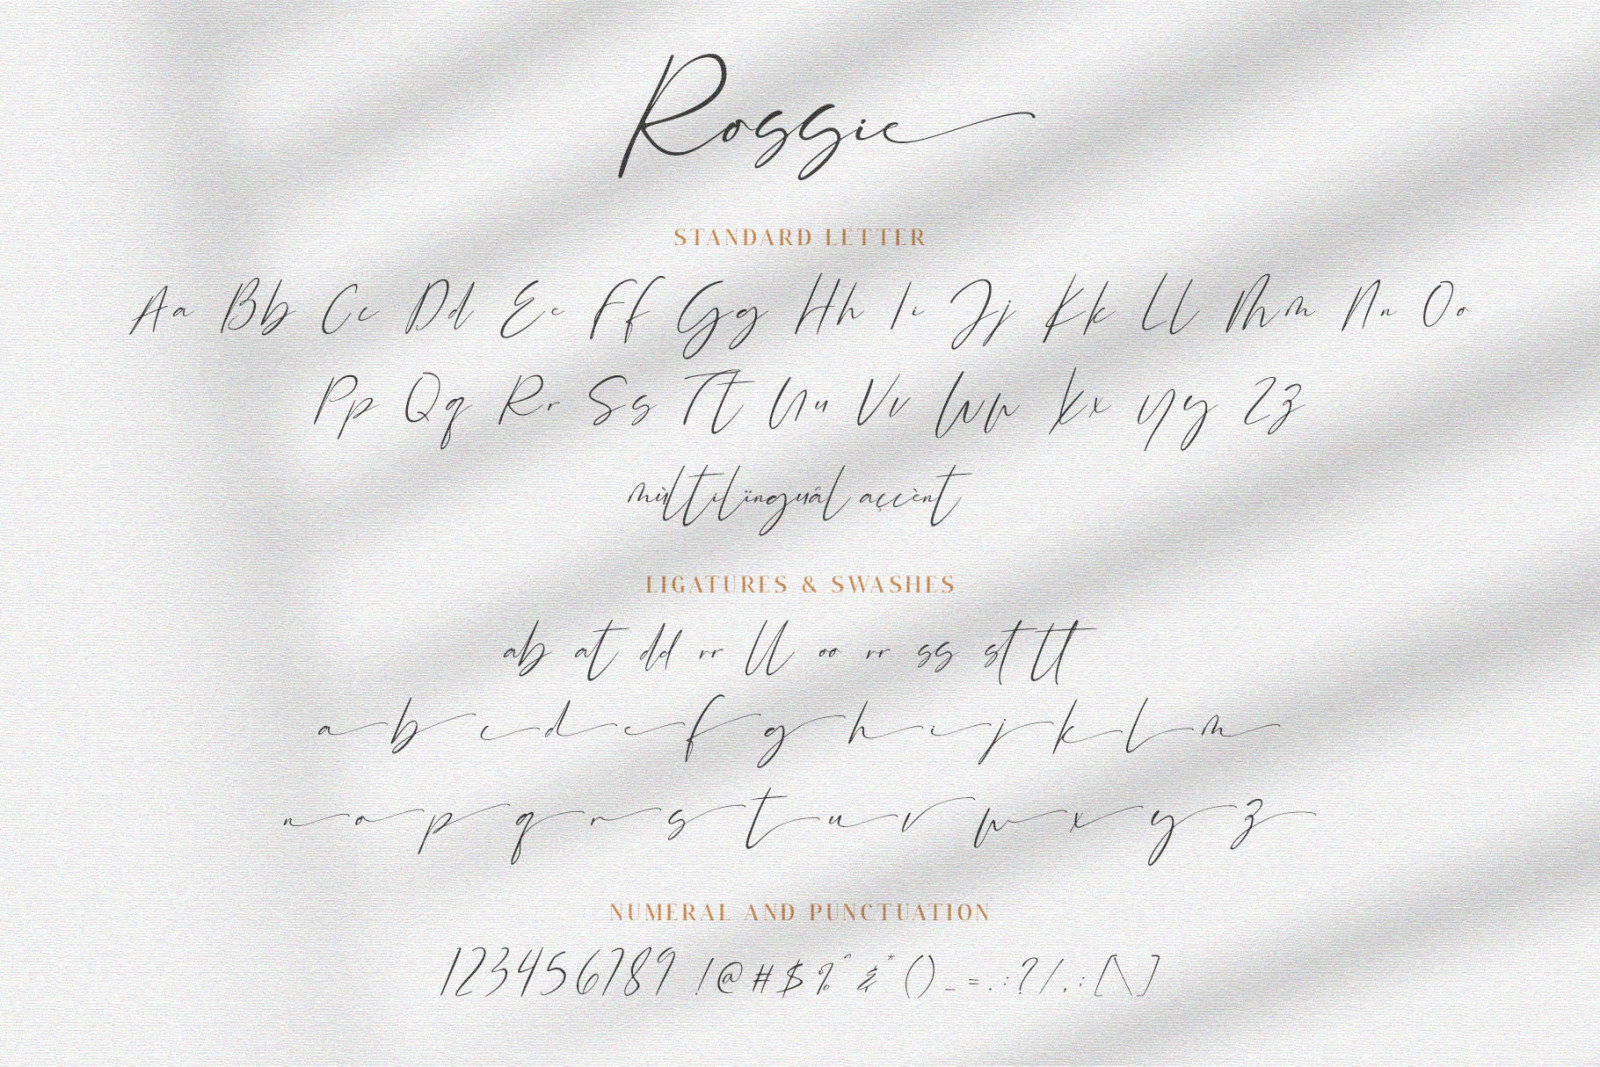 Rossie
STANDARD LETTER
Aa Bb Cc Dd Ee Ff Gg Hh Ii Jj Kk Ll Mm Nn Oo
Pp Qq Rr Ss Tt Uu Vv Ww Xx Yy Zz
mùltilïnguâl aççènt
LIGATURES & SWASHES
ab at dd rr ll oo rr ss st tt
a b c d e f g h i j k l m
n o p q r s t u v w x y z
NUMERAL AND PUNCTUATION
123456789 !@#$%^&*()_=.:?/,:[\]